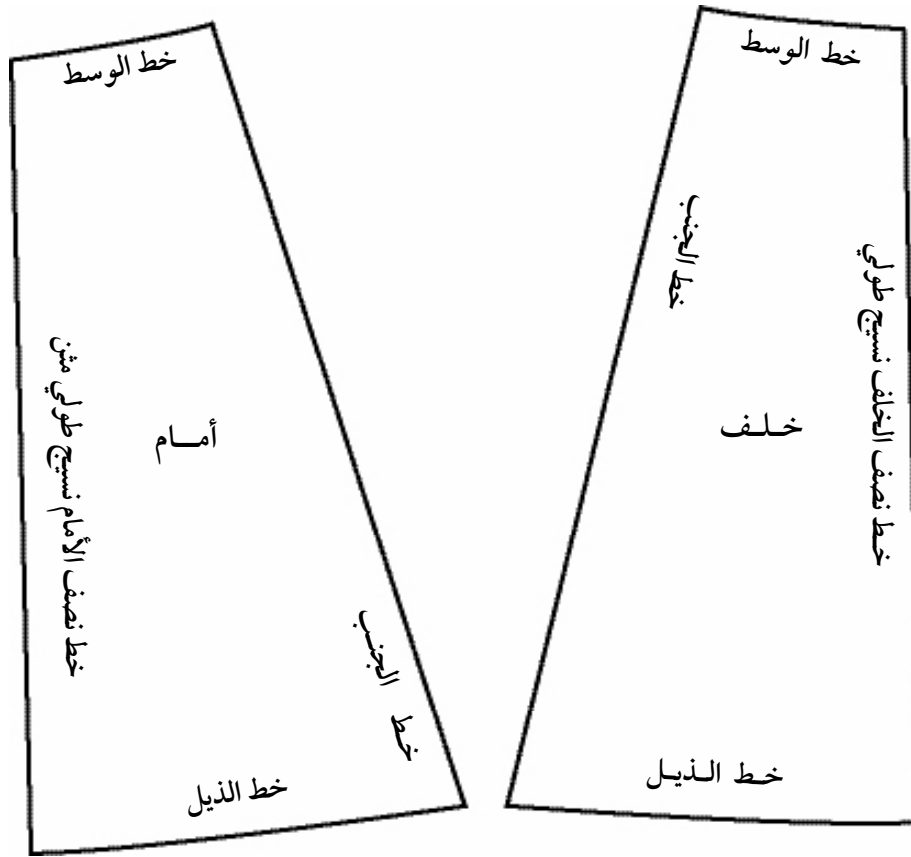 خط الوسط
خط الوسط
خط الجنب
خط نصف الخلف نسيج طولي
خلف
خط الذيل
أمام
خط نصف الأمام نسيج طولي مثن
خط الجنب
خط الذيل